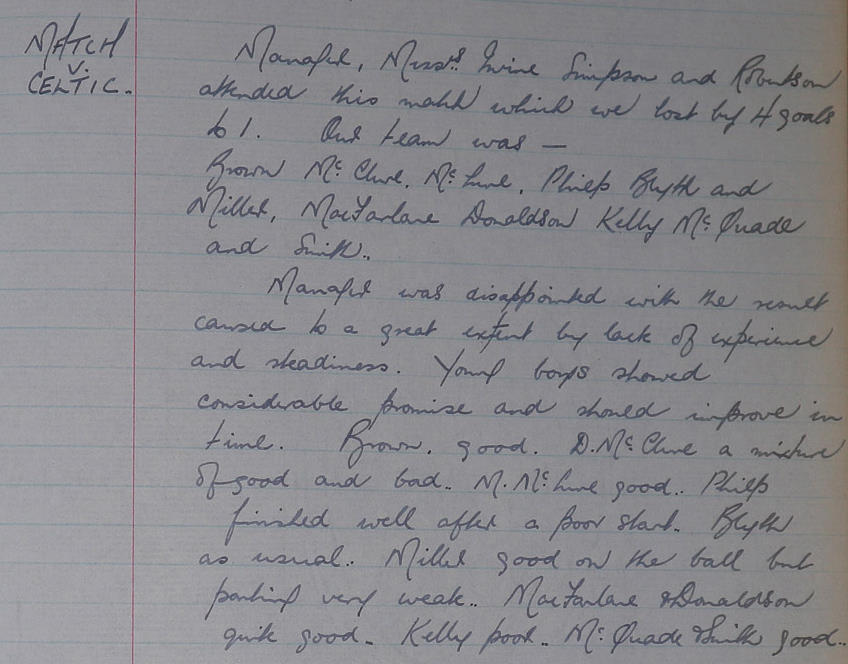 MATCH
V.
CELTIC.
Manager, Messrs. Irvine Simpson and Robertson
attended this match which we lost by 4 goals
to 1. Our team was —
Brown McClure, McLure, Philp Blyth and
Miller, MacFarlane Donaldson Kelly McQuade
and Smith..
Manager was disappointed with the result
caused to a great extent by lack of experience
and steadiness. Young boys showed
considerable promise and should improve in
time. Brown, good. D. McClure a mixture
of good and bad.. M. McLure good.. Philp
finished well after a poor start. Blyth
as usual.. Miller good on the ball but
parting very weak.. MacFarlane & Donaldson
quite good.. Kelly poor.. McQuade & Smith good..